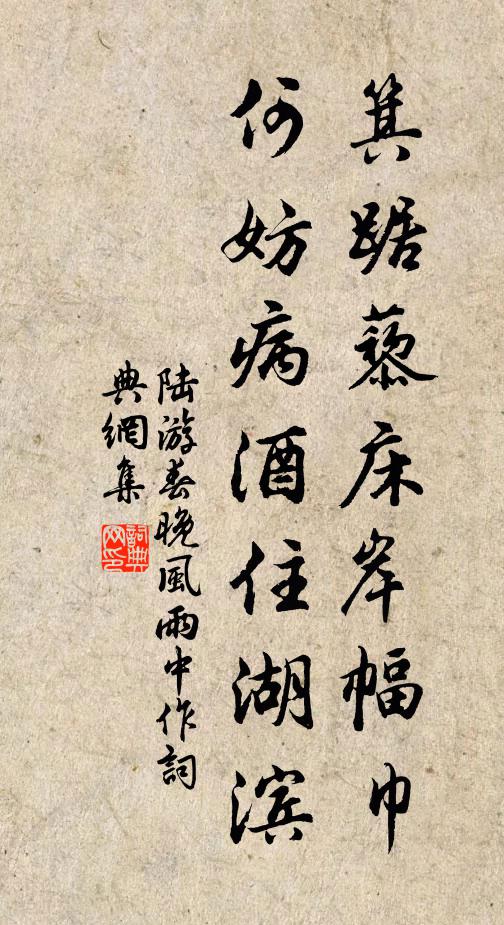 箕踞藜床岸幅巾
何妨病酒住湖滨
陆游春晚風雨中作詞
典網集
詞典
网印